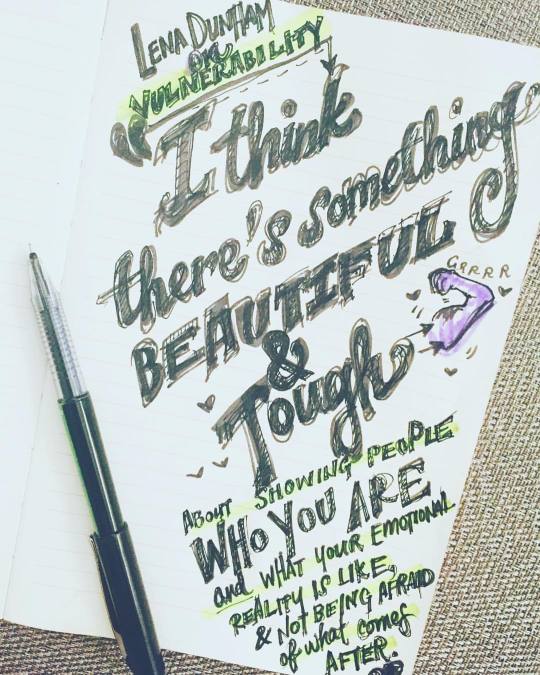 LENA DUNHAM
ON
VULNERABILITY
"I think
there's something
BEAUTIFUL
GRRRR
&
Tough
ABOUT SHOWING PEOPLE
WHO YOU ARE
and WHAT YOUR EMOTIONAL
REALITY IS LIKE,
& NOT BEING AFRAID
of what comes
AFTER."